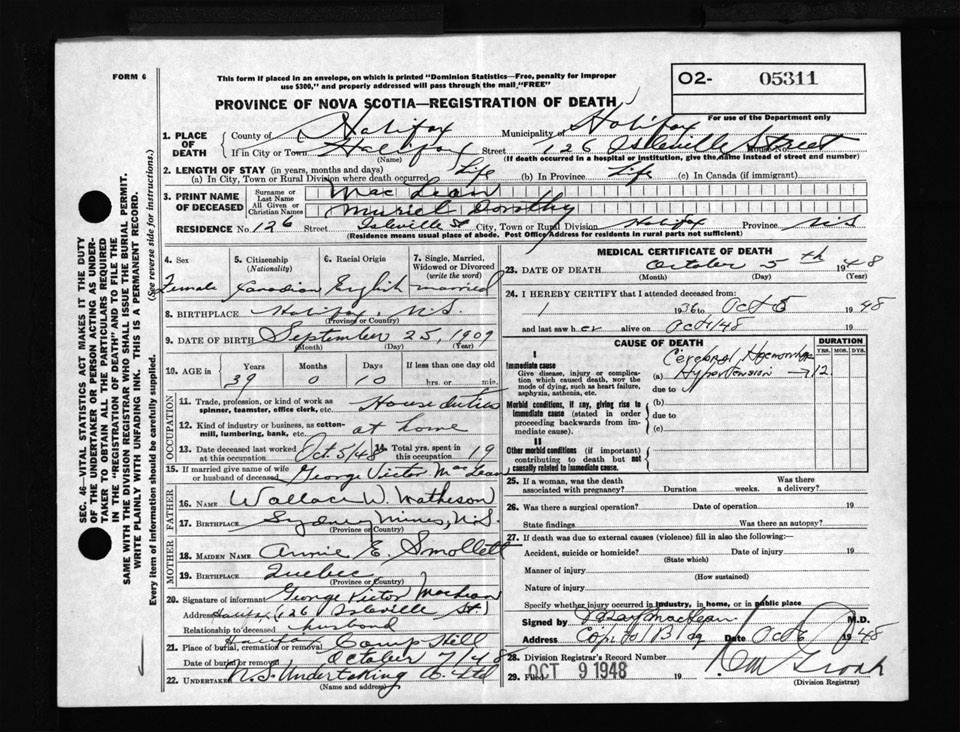 FORM 6
This form if placed in an envelope, on which is printed "Dominion Statistics—Free, penalty for improper
use $300," and properly addressed will pass through the mail, "FREE"
O2- 05311
PROVINCE OF NOVA SCOTIA—REGISTRATION OF DEATH
For use of the Department only
1. PLACE OF DEATH
County of Halifax Municipality of Halifax
If in City or Town Halifax Street 126 Isleville Street
(Name) (If death occurred in a hospital or institution, give the name instead of street and number)
2. LENGTH OF STAY (in years, months and days)
(a) In City, Town or Rural Division where death occurred Life (b) In Province Life (c) In Canada (if immigrant)
3. PRINT NAME OF DECEASED
Surname or Last Name MacLean
All Given or Christian Names Muriel Dorothy
RESIDENCE No. 126 Street Isleville St City, Town or Rural Division Halifax Province N.S
(Residence means usual place of abode. Post Office Address for residents in rural parts not sufficient)
4. Sex
Female
5. Citizenship
(Nationality)
Canadian
6. Racial Origin
English
7. Single, Married,
Widowed or Divorced
(write the word)
married
8. BIRTHPLACE Halifax, N.S.
(Province or Country)
9. DATE OF BIRTH September 25, 1909
(Month) (Day) (Year)
10. AGE in
Years Months Days If less than one day old
39 0 10 hrs. or min.
OCCUPATION
11. Trade, profession, or kind of work as
spinner, teamster, office clerk, etc. House duties
12. Kind of industry or business, as cotton-
mill, lumbering, bank, etc. at home
13. Date deceased last worked
at this occupation Oct. 5/48
14. Total yrs. spent in
this occupation 19
15. If married give name of wife
or husband of deceased George Victor MacLean
FATHER
16. NAME Wallace W. Matheson
17. BIRTHPLACE Sydney Mines, N.S.
(Province or Country)
MOTHER
18. MAIDEN NAME Annie E. Smollett
19. BIRTHPLACE Quebec
(Province or Country)
20. Signature of informant George Victor MacLean
Address Halifax 126 Isleville St.
Relationship to deceased husband
21. Place of burial, cremation or removal Halifax Camp Hill
Date of burial or removal October 7/48
22. Undertaker N.S. Undertaking Co. Ltd
(Name and address)
MEDICAL CERTIFICATE OF DEATH
23. DATE OF DEATH October 5th 1948
(Month) (Day) (Year)
24. I HEREBY CERTIFY that I attended deceased from:
1 1936 to Oct 5 1948
and last saw her alive on Oct 4/48 19
CAUSE OF DEATH
DURATION
YRS. MOS. DYS.
I
Immediate cause
Give disease, injury or compli-
cation which caused death, not the
mode of dying, such as heart failure,
asphyxia, asthenia, etc.
Cerebral Haemorrhage
(a) Hypertension → 12.
due to
Morbid conditions, if any, giving rise to
immediate cause (stated in order
proceeding backwards from im-
mediate cause).
(b)
due to
(c)
II
Other morbid conditions (if important)
contributing to death but not
causally related to immediate cause.
25. If a woman, was the death
associated with pregnancy? Duration weeks. Was there
a delivery?
26. Was there a surgical operation? Date of operation 19
State findings Was there an autopsy?
27. If death was due to external causes (violence) fill in also the following:—
Accident, suicide or homicide? Date of injury 19
(State which)
Manner of injury
(How sustained)
Nature of injury
Specify whether injury occurred in industry, in home, or in public place
Signed by MacLean M.D.
Address Date Oct 6 1948
28. Division Registrar's Record Number
29. Filed OCT 9 1948 19
(Division Registrar)
SEC. 46—VITAL STATISTICS ACT MAKES IT THE DUTY
OF THE UNDERTAKER OR PERSON ACTING AS UNDER-
TAKER TO OBTAIN ALL THE PARTICULARS REQUIRED
IN THE "REGISTRATION OF DEATH" AND TO FILE THE
SAME WITH THE DIVISION REGISTRAR WHO SHALL ISSUE THE BURIAL PERMIT.
WRITE PLAINLY WITH UNFADING INK. THIS IS A PERMANENT RECORD.
Every item of information should be carefully supplied. (See reverse side for instructions.)